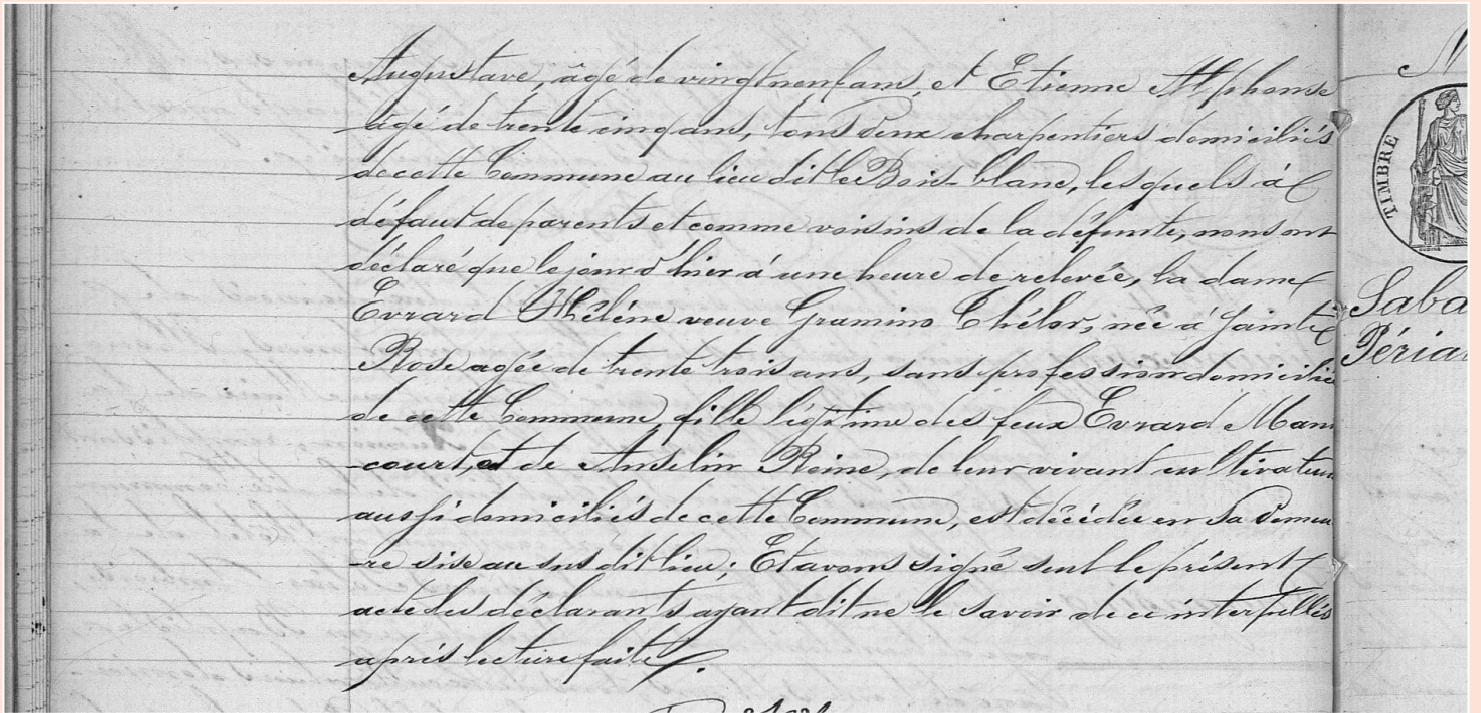 Augustave, âgé de vingt neuf ans, et Etienne Alphonse
âgé de trente cinq ans, tous deux charpentiers domiciliés
de cette Commune au lieu dit le Bois-blanc, les quels à
défaut de parents et comme voisins de la défunte, nous ont
déclaré que le jour d'hier à une heure de relevée, la dame
Evrard Hélène veuve Gramino Chélor, née à Sainte
Rose agée de trente trois ans, sans profession domicilié
de cette Commune, fille légitime des feux Evrard Man
-court, et de Anselin Reine, de leur vivant cultivateur
aussi domiciliés de cette Commune, est décédée en sa demeu
-re sise au sus dit lieu; Et avons signé seul le présent
acte les déclarants ayant dit ne le savoir de ce interpellés
après lecture faite.
TIMBRE
Saba
Péria